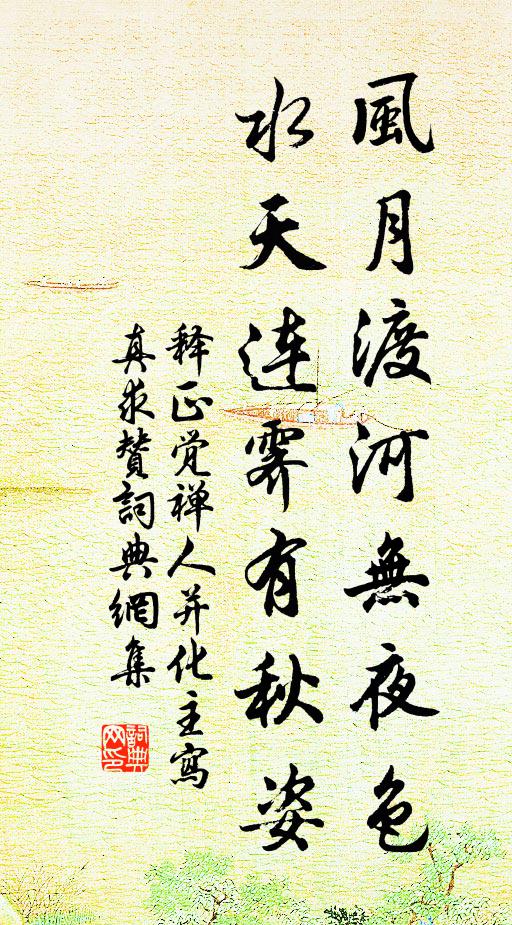 風月渡河無夜色
水天連霽有秋姿
释正觉禅人并化主寫
真求贊詞典網集
詞典
网印